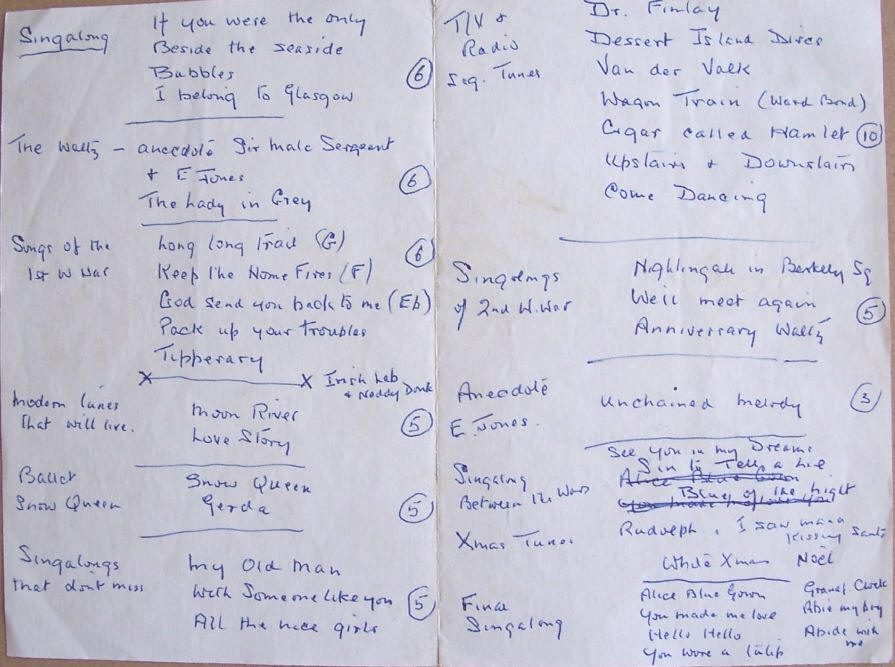 Singalong
If you were the only
Beside the seaside
Bubbles
I belong to Glasgow
6
The Waltz - anecdote Sir Malc Sergeant
+ E Jones
The Lady in Grey
6
Songs of the
1st W War
Long long Trail (G)
Keep the Home Fires (F)
God send you back to me (Eb)
Pack up your Troubles
Tipperary
6
X X Irish Lab
+ Noddy Donk
Modern tunes
that will live.
Moon River
Love Story
5
Ballet
Snow Queen
Snow Queen
Gerda
5
Singalongs
that don't miss
My Old Man
With Someone like you
All the nice girls
5
T/V &
Radio
Sig. Tunes
Dr. Finlay
Dessert Island Discs
Van der Valk
Wagon Train (Ward Bond)
Cigar called Hamlet
Upstairs + Downstairs
Come Dancing
10
Singalongs
of 2nd W. War
Nightingale in Berkely Sq
We'll meet again
Anniversary Waltz
5
Anecdote
E. Jones.
Unchained Melody
3
Singalong
Between the Wars
See you in my Dreams
Sin to Tell a Lie
Alice Blue Gown
Blue of the Night
You made me love you
Xmas Tunes
Rudolph, I saw mama
kissing Santa
White Xmas Noël
Final
Singalong
Alice Blue Gown
You made me love
Hello Hello
You wore a tulip
Granf. Clock
Abie my boy
Abide with
me